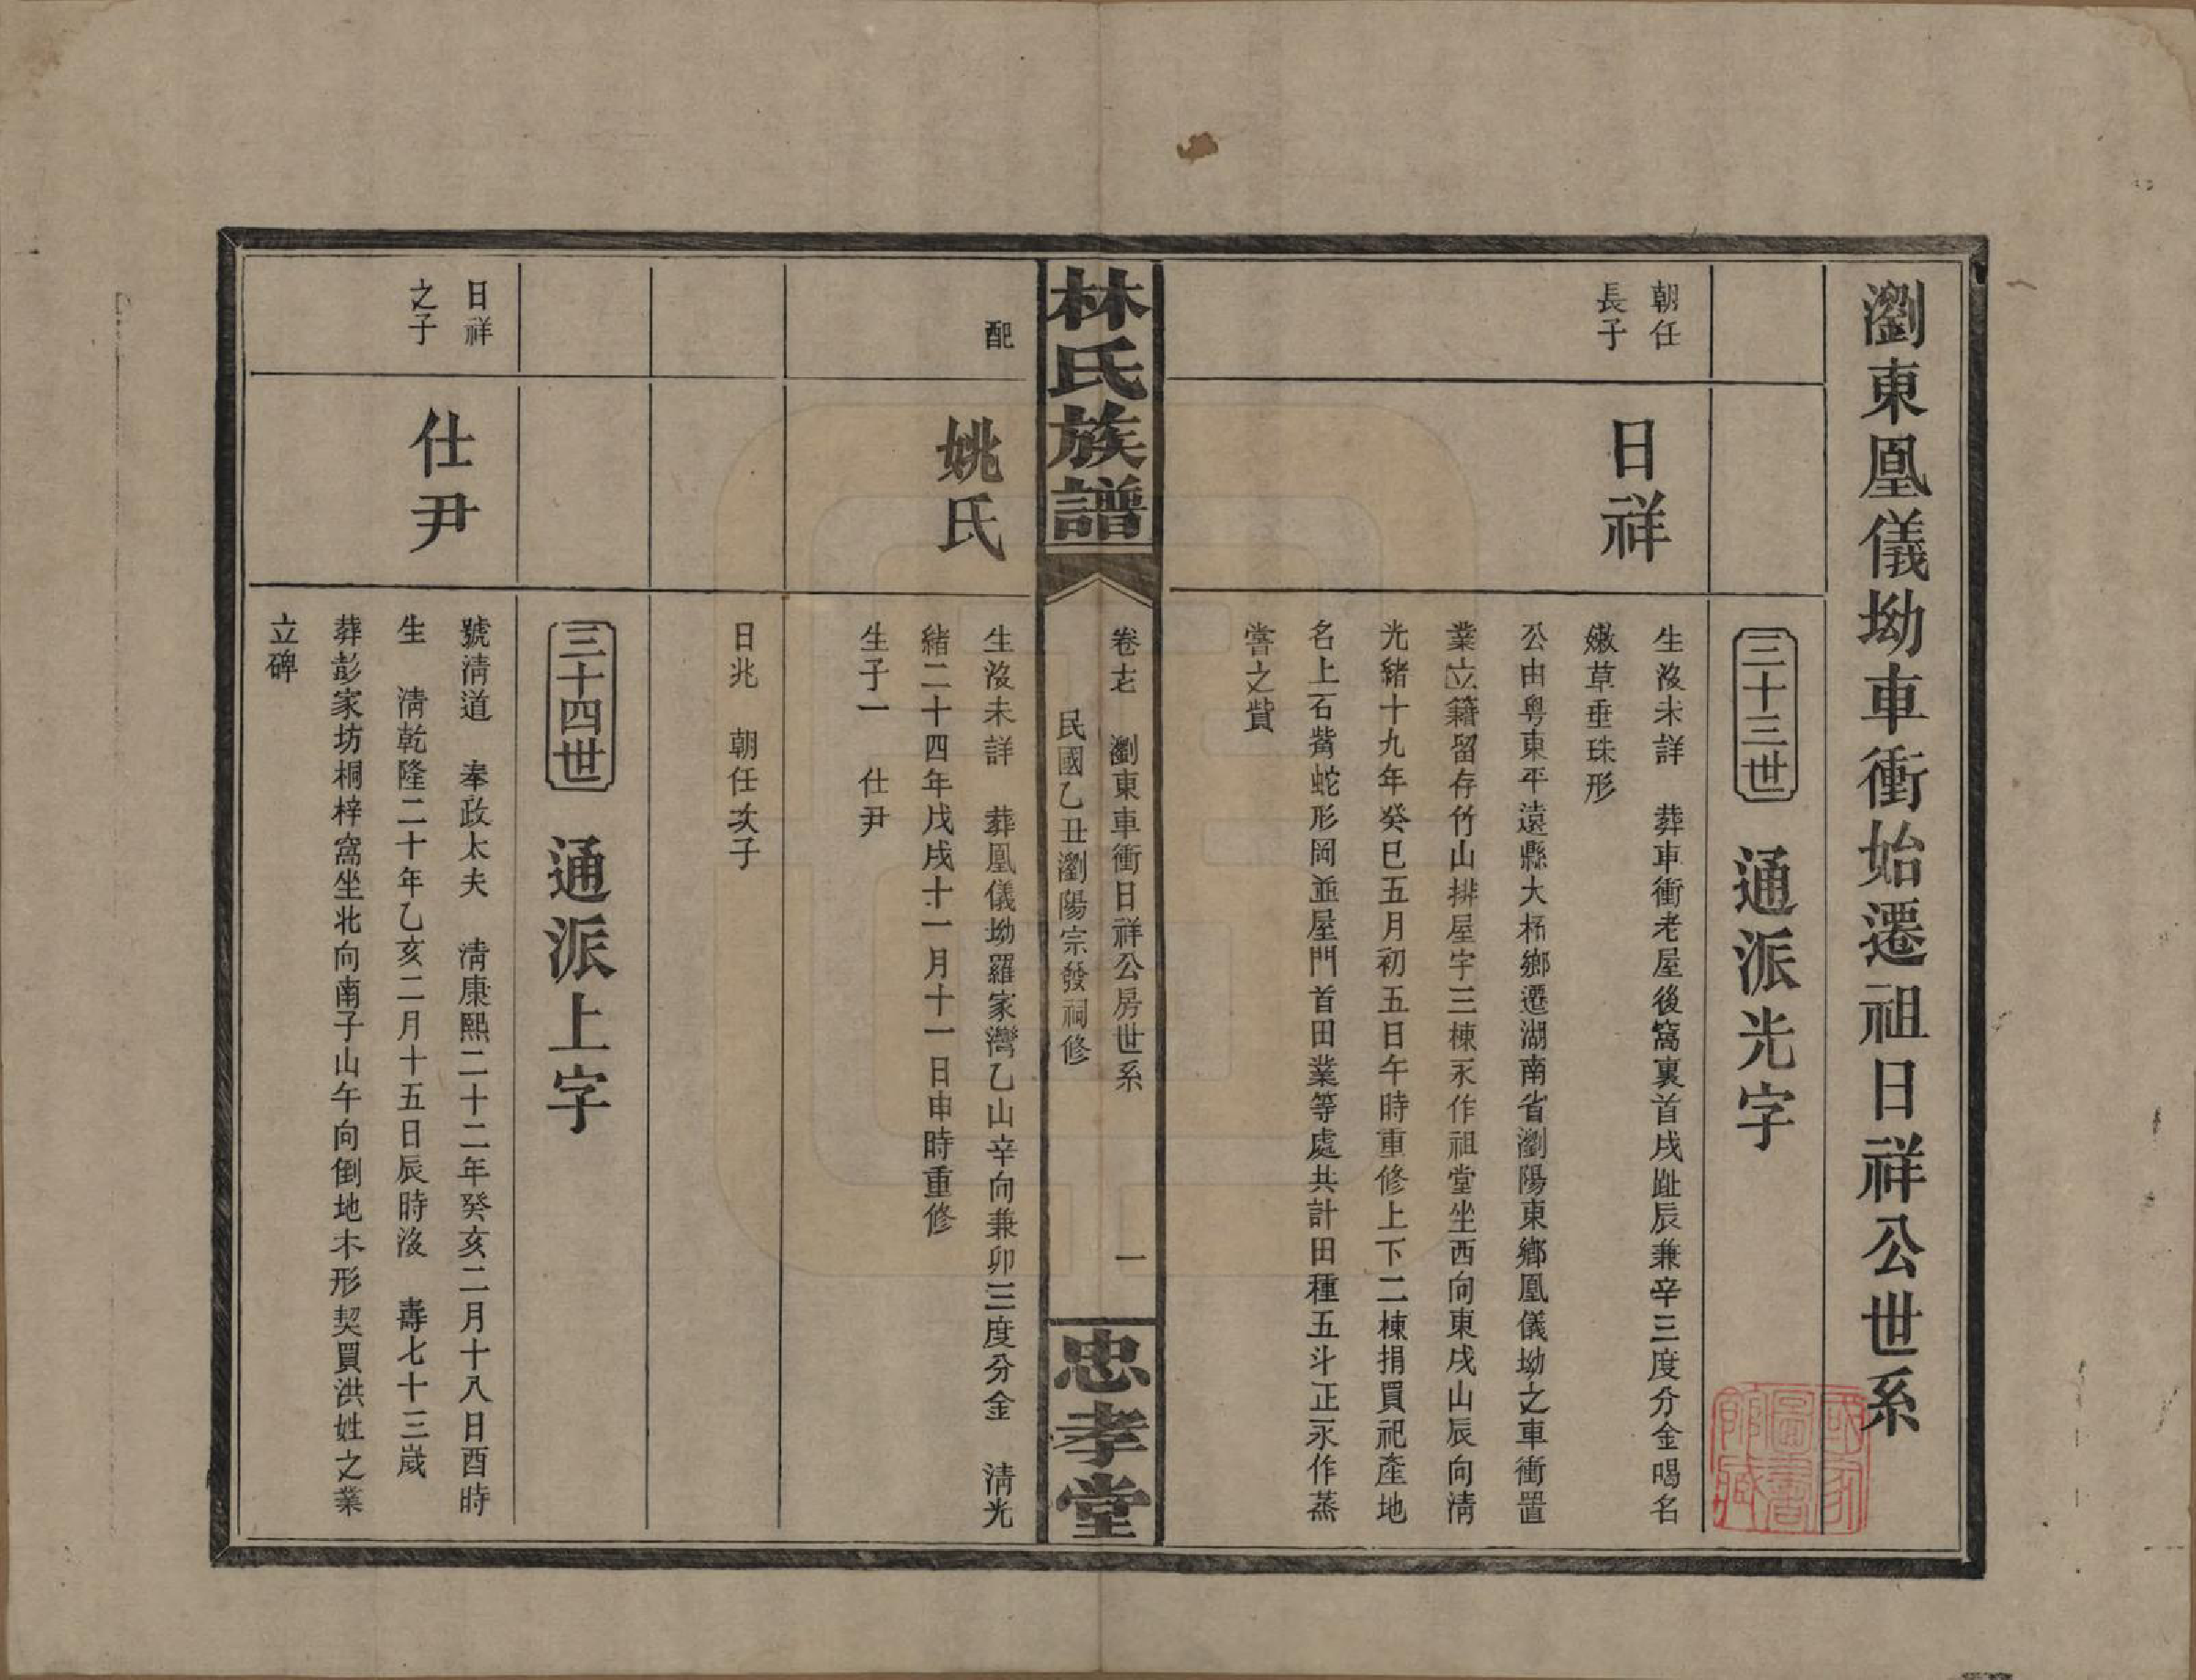 瀏東鳳儀坳車衝始遷祖日祥公世系
三十三世　通派光字
朝任
長子
日祥
生沒未詳　葬車衝老屋後窩裏首戌趾辰兼辛三度分金喝名
嫩草垂珠形
公由粵東平遠縣大柘鄉遷湖南省瀏陽東鄉鳳儀坳之車衝置
業立籍留存竹山排屋宇三棟永作祖堂坐西向東戌山辰向清
光緒十九年癸巳五月初五日午時重修上下二棟捐買祀產地
名上石觜蛇形岡並屋門首田業等處共計田種五斗正永作蒸
嘗之貲
林氏族譜
卷七　瀏東車衝日祥公房世系　一
民國乙丑瀏陽宗發祠修
忠孝堂
配
姚氏
生沒未詳　葬鳳儀坳羅家灣乙山辛向兼卯三度分金　清光
緒二十四年戊戌十一月十一日申時重修
生子一　仕尹
日兆　朝任次子
三十四世　通派上字
日祥
之子
仕尹
號清道　奉政大夫　清康熙二十二年癸亥二月十八日酉時
生　清乾隆二十年乙亥二月十五日辰時沒　壽七十三歲
葬彭家坊桐梓窩坐北向南子山午向倒地木形契買洪姓之業
立碑
國家
圖書
館藏